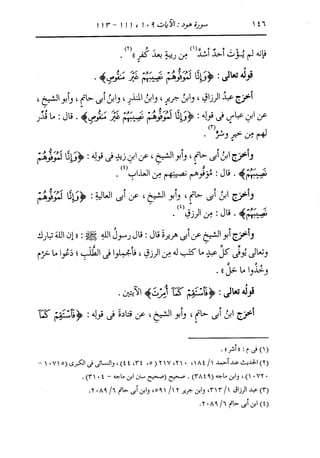 ١٤٦
سورة هود : الآيات ١٠٩ ، ١١١ - ١١٣
فإنه لم يُؤْتَ أحدٌ أشدَّ(١) من رِيبةٍ بعدَ كُفرٍ »(٢) .
قولُه تعالى : ﴿ وَإِنَّا لَمُوَفُّوهُمْ نَصِيبَهُمْ غَيْرَ مَنقُوصٍ ﴾ .
أخرَج عبدُ الرزاقِ ، وابنُ جريرٍ ، وابنُ المنذرِ ، وابنُ أبى حاتمٍ ، وأبو الشيخِ ،
عن ابنِ عباسٍ فى قولِه : ﴿ وَإِنَّا لَمُوَفُّوهُمْ نَصِيبَهُمْ غَيْرَ مَنقُوصٍ ﴾ . قال : ما قُدِّر
لهم من خيرٍ وشرٍّ(٣) .
وأخرَج ابنُ أبى حاتمٍ ، وأبو الشيخِ ، عن ابنِ زيدٍ فى قولِه : ﴿ وَإِنَّا لَمُوَفُّوهُمْ
نَصِيبَهُمْ ﴾ . قال : مُوَفُّوهم نصيبَهم من العذابِ(٤) .
وأخرَج ابنُ أبى حاتمٍ ، وأبو الشيخِ ، عن أبى العاليةِ : ﴿ وَإِنَّا لَمُوَفُّوهُمْ
نَصِيبَهُمْ ﴾ . قال : من الرزقِ(٤) .
وأخرَج أبو الشيخِ عن أبى هريرةَ قال : قال رسولُ اللهِ ﷺ : « إن اللهَ تبارك
وتعالى يُوَفِّى كلَّ عبدٍ ما كتَب له من الرزقِ ، فأجمِلوا فى الطلَبِ ؛ دَعُوا ما حَرُم
وخُذُوا ما حَلَّ » .
قولُه تعالى : ﴿ فَاسْتَقِمْ كَمَا أُمِرْتَ ﴾ الآيتين .
أخرَج ابنُ أبى حاتمٍ ، وأبو الشيخِ ، عن قتادةَ فى قولِه : ﴿ فَاسْتَقِمْ كَمَا
(١) فى م : « أشر » .
(٢) الحديث عند أحمد ١/ ١٨٤، ٢١٠، ٢١٧ (٥، ٣٤، ٤٤) ، والنسائى فى الكبرى (١٠٧١٥ -
١٠٧٢٠) ، وابن ماجه (٣٨٤٩) . صحيح (صحيح سنن ابن ماجه - ٣١٠٤) .
(٣) عبد الرزاق ١/ ٣١٣، وابن جرير ١٢/ ٥٩١، وابن أبى حاتم ٦/ ٢٠٨٩ .
(٤) ابن أبى حاتم ٦/ ٢٠٨٩ .